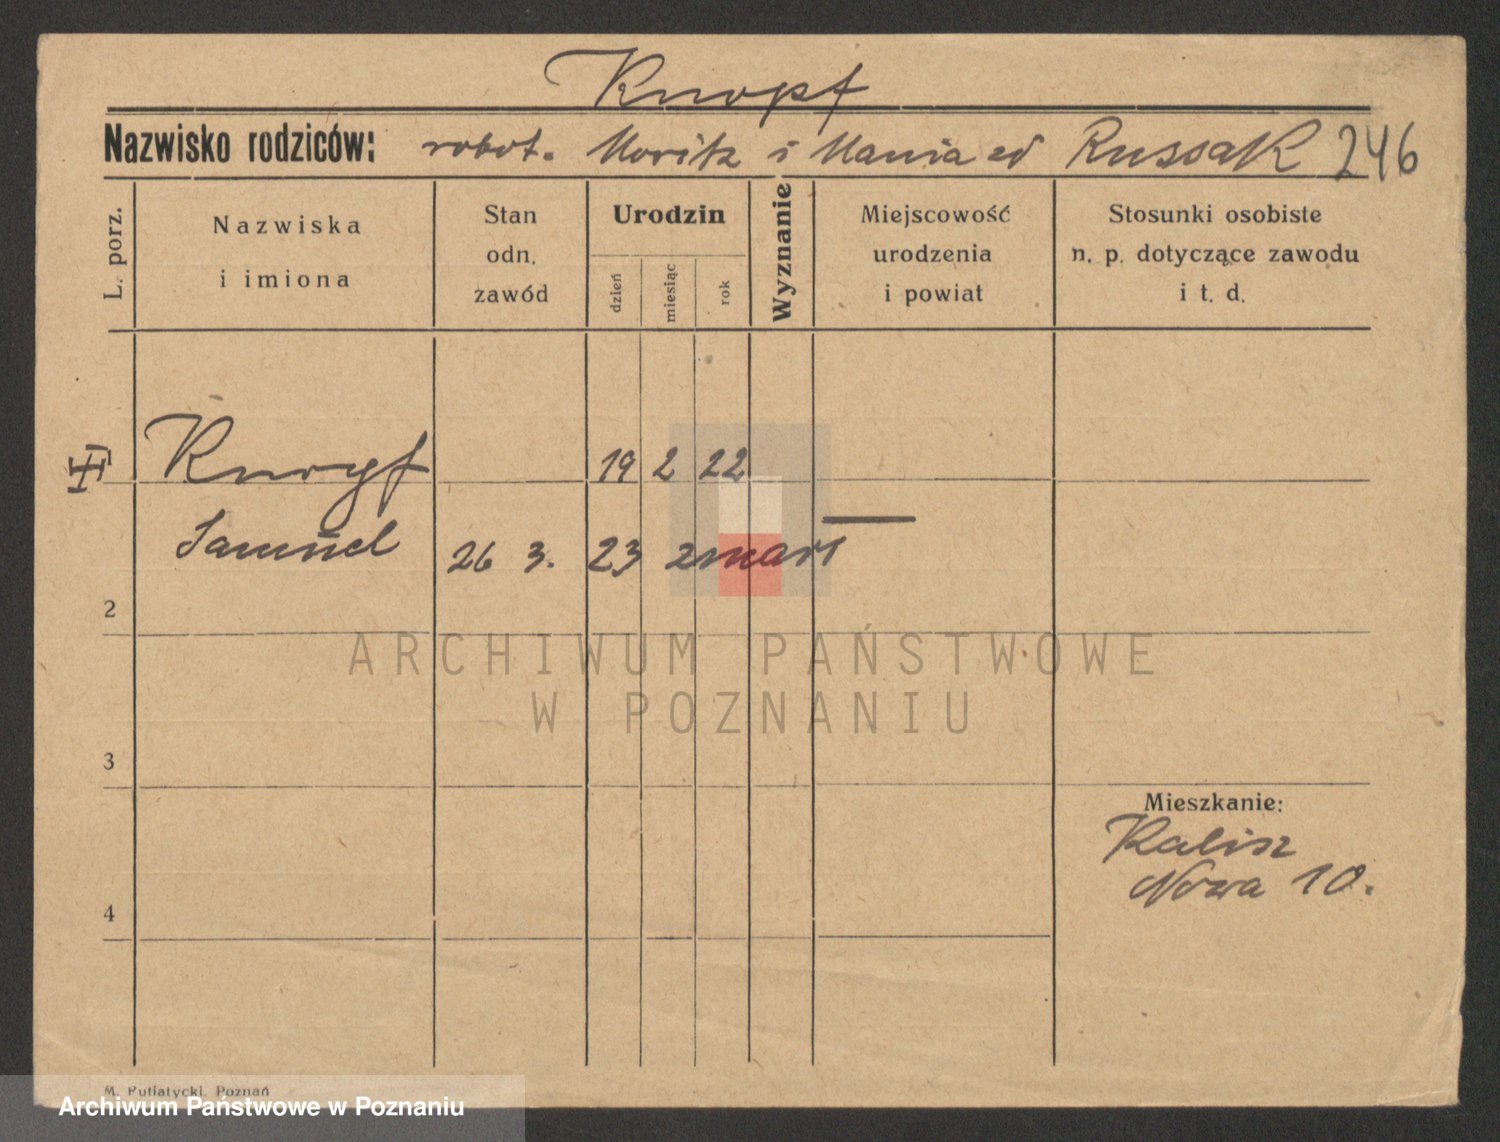 Knopf
Nazwisko rodziców: robot. Moritz i Mania ed Russak 246
L. porz.
Nazwiska
i imiona
Stan
odn.
zawód
Urodzin
dzień
miesiąc
rok
Wyznanie
Miejscowość
urodzenia
i powiat
Stosunki osobiste
n. p. dotyczące zawodu
i t. d.
Knopf 19 2 22
Samuel 26 3. 23 zmarł
2
3
4
Mieszkanie:
Kalisz
Nowa 10.
ARCHIWUM PAŃSTWOWE
W POZNANIU
M. Putiatycki, Poznań
Archiwum Państwowe w Poznaniu